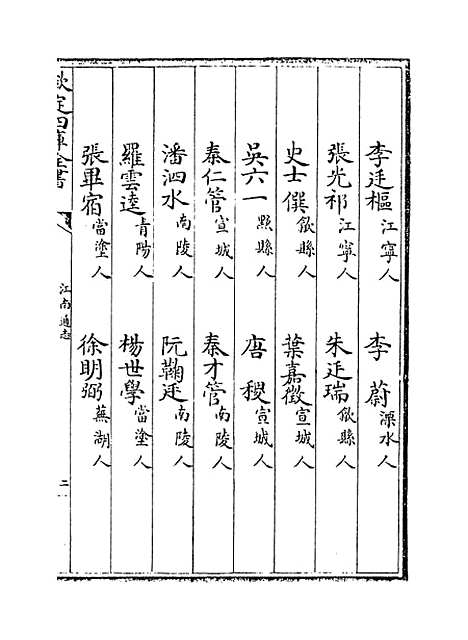 李廷樞江寧人 李蔚溧水人
張光祁江寧人 朱廷瑞歙縣人
史士僎歙縣人 葉嘉徵宣城人
吳六一黟縣人 唐稷宣城人
秦仁管宣城人 秦才管南陵人
潘泗水南陵人 阮鞠廷南陵人
羅雲逵青陽人 楊世學當塗人
張畢宿當塗人 徐明弼蕪湖人
欽定四庫全書 江南通志